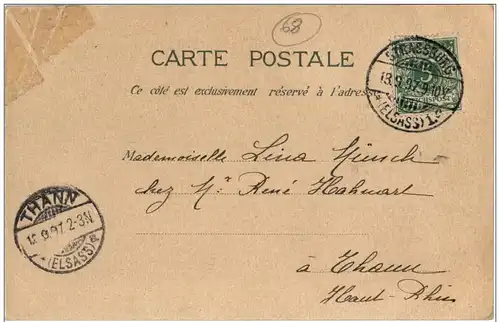 68
CARTE POSTALE
Ce côté est exclusivement réservé à l'adresse
STRASSBURG
13.9.97.9-10V
*(ELSASS)1.c
5
REICHSPOST
Mademoiselle Lina Münsch
chez Mr. René Hahnart
à Thann
Haut-Rhin
THANN
13.9.97.2-3N
*(ELSASS)*